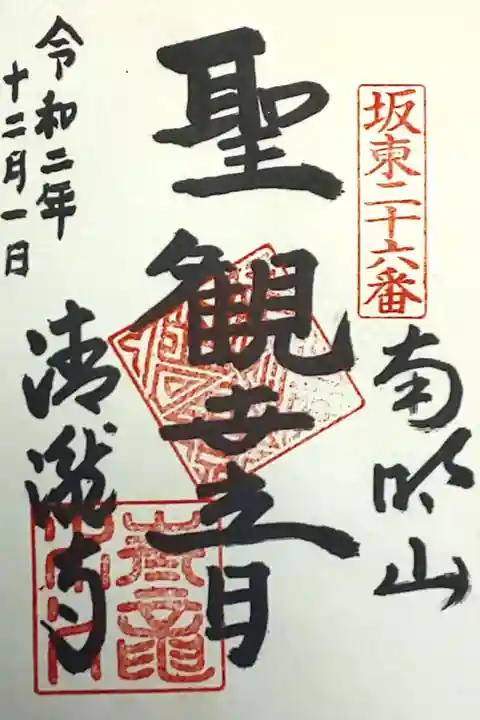 坂東二十六番
南明山
聖観世音
令和二年
十二月一日
清瀧寺